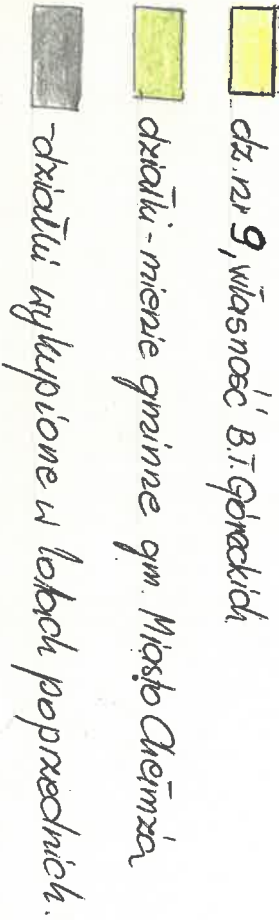 dz. nr 9, własność B.T. Góreckich
działki - mienie gminne gm. Miasto Chełmża
- działki wykupione w latach poprzednich.